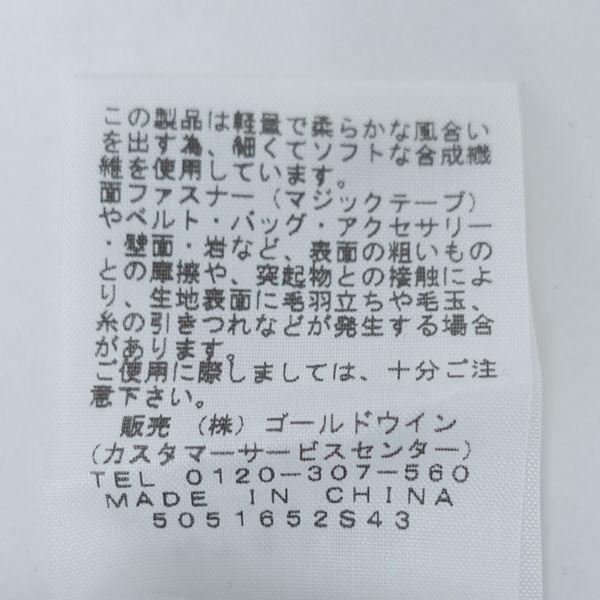 この製品は軽量で柔らかな風合い
を出す為、細くてソフトな合成繊
維を使用しています。
面ファスナー（マジックテープ）
やベルト・バッグ・アクセサリー
・壁面・岩など、表面の粗いもの
との摩擦や、突起物との接触によ
り、生地表面に毛羽立ちや毛玉、
糸の引きつれなどが発生する場合
があります。
ご使用に際しましては、十分ご注
意下さい。
販売 （株）ゴールドウイン
(カスタマーサービスセンター)
TEL 0120-307-560
MADE IN CHINA
5051652S43